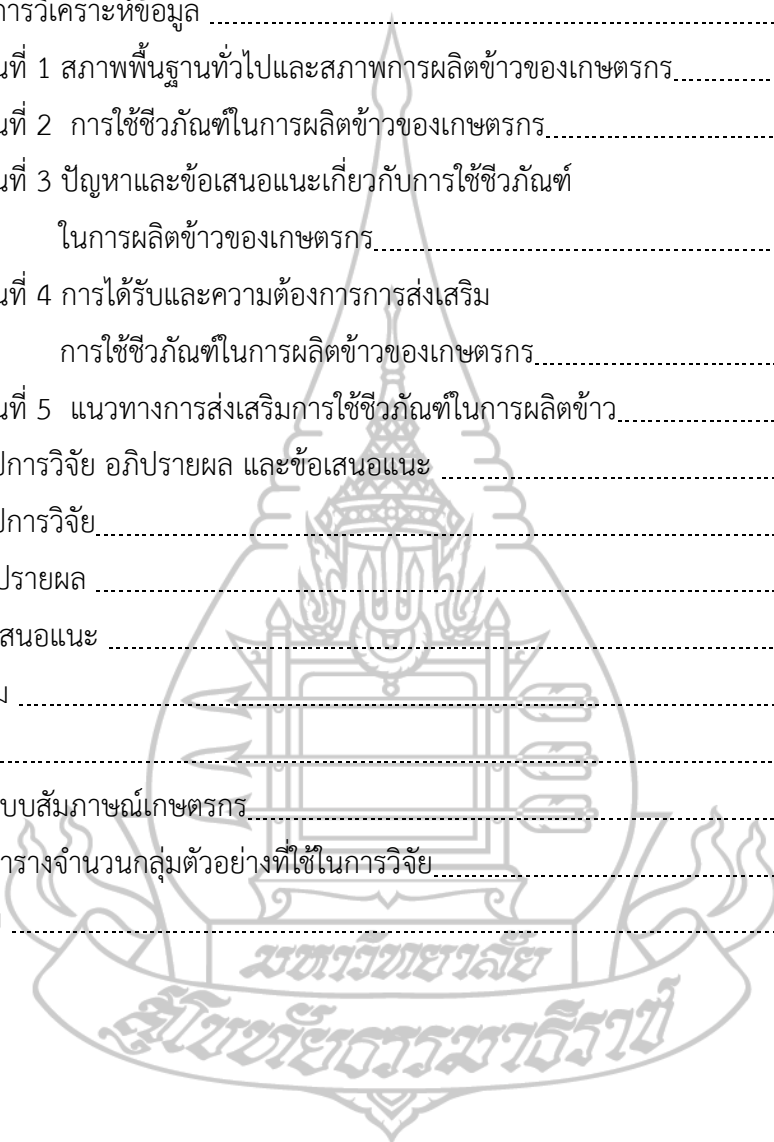 การวิเคราะห์ข้อมูล
นที่ 1 สภาพพื้นฐานทั่วไปและสภาพการผลิตข้าวของเกษตรกร
นที่ 2 การใช้ชีวภัณฑ์ในการผลิตข้าวของเกษตรกร
นที่ 3 ปัญหาและข้อเสนอแนะเกี่ยวกับการใช้ชีวภัณฑ์
ในการผลิตข้าวของเกษตรกร
นที่ 4 การได้รับและความต้องการการส่งเสริม
การใช้ชีวภัณฑ์ในการผลิตข้าวของเกษตรกร
นที่ 5 แนวทางการส่งเสริมการใช้ชีวภัณฑ์ในการผลิตข้าว
ปการวิจัย อภิปรายผล และข้อเสนอแนะ
ปการวิจัย
ปรายผล
สนอแนะ
ม
บบสัมภาษณ์เกษตรกร
ารางจำนวนกลุ่มตัวอย่างที่ใช้ในการวิจัย
มหาวิทยาลัย
สุโขทัยธรรมาธิราช